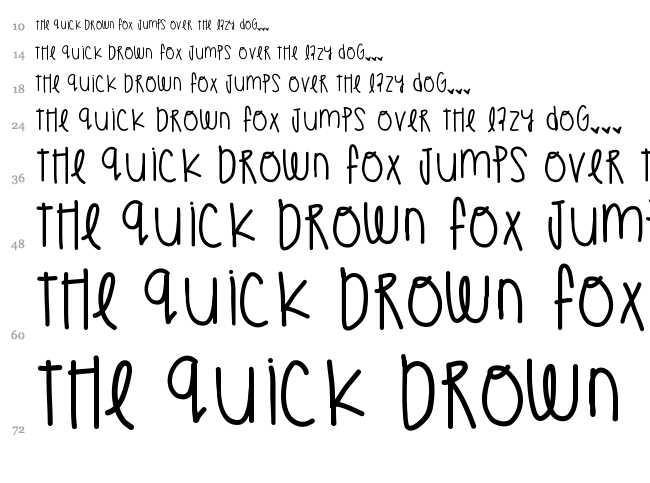 10 THe quick brown fox jumps over the lazy dog...
14 THe quick brown fox jumps over the lazy dog...
18 THe quick brown fox jumps over the lazy dog...
24 THe quick brown fox jumps over the lazy dog...
36 THe quick brown fox jumps over t
48 THe quick brown fox jump
60 THe quick brown fox
72 THe quick brown